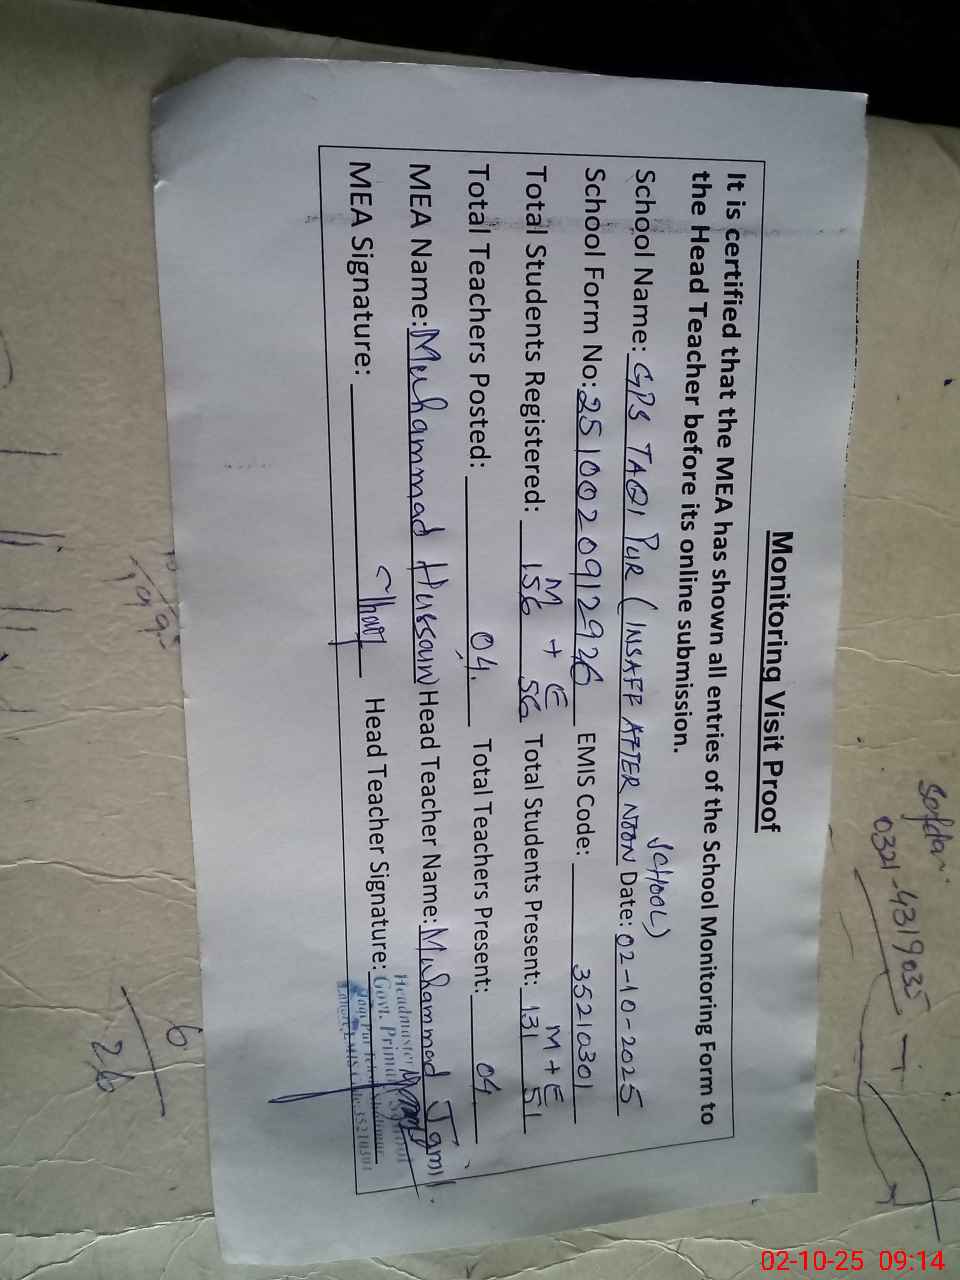 Monitoring Visit Proof
It is certified that the MEA has shown all entries of the School Monitoring Form to
the Head Teacher before its online submission.
School Name: GPS TAQI PUR (INSAFF AFTER NOON SCHOOL) Date: 02-10-2025
School Form No: 2510020912926 EMIS Code: 35210301
M + E M + E
Total Students Registered: 156 56 Total Students Present: 131 51
Total Teachers Posted: 04. Total Teachers Present: 04
MEA Name: Muhammad Hussain Head Teacher Name: Muhammad Jamil.
MEA Signature: Head Teacher Signature:
Headmaster
Govt. Primary School
Taqi Pur
Lahore EMIS Code 35210301
Safdar.
0321-4319035
6
26
02-10-25 09:14